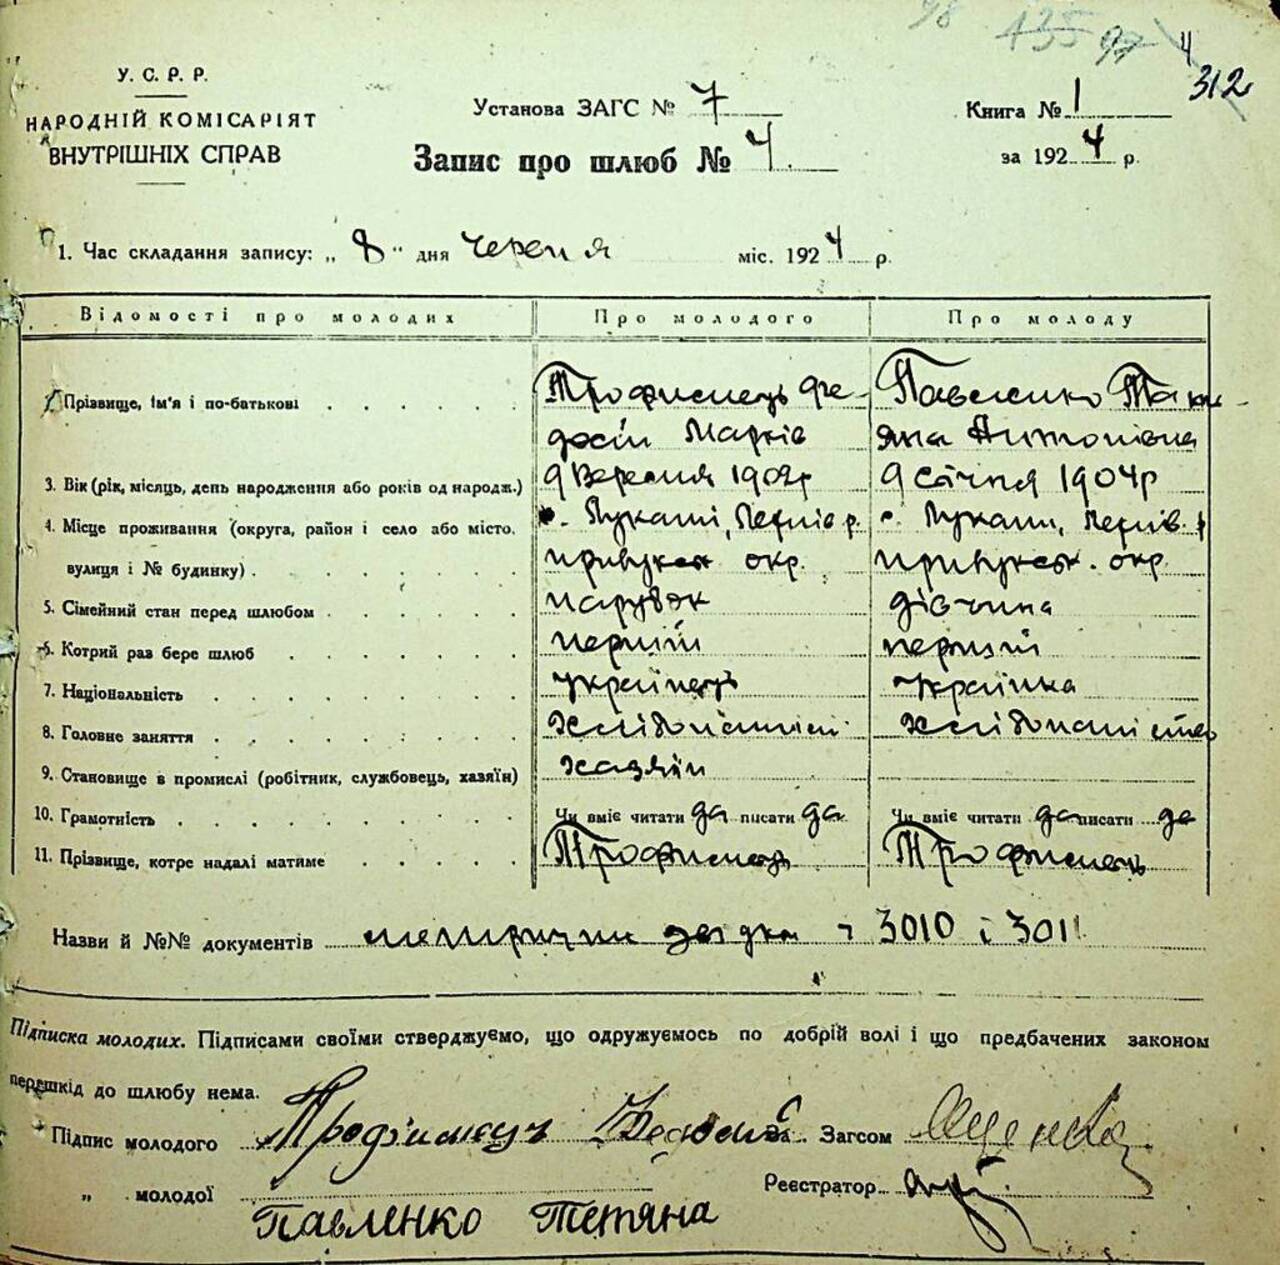 98 435 97 4
312
У. С. Р. Р.
НАРОДНІЙ КОМІСАРІЯТ
ВНУТРІШНІХ СПРАВ
Установа ЗАГС № 7
Запис про шлюб № 4.
Книга № 1
за 1924 р.
1. Час складання запису: „ 8 “ дня червня міс. 1924 р.
Відомості про молодих Про молодого Про молоду
Прізвище, ім'я і по-батькові Трофименць Фе- Павленко Тати-
досій Марків яна Антонівна
3. Вік (рік, місяць, день народження або років од народж.) 9 Вересня 1902р 9 Січня 1904р
4. Місце проживання (округа, район і село або місто, с. Лукаші, р. с. Лукаши,
вулиця і № будинку). окр. окр.
5. Сімейний стан перед шлюбом парубок дівчина
6. Котрий раз бере шлюб перший перший
7. Національність Українець Українка
8. Головне заняття хлібопашест хлібопашество
9. Становище в промислі (робітник, службовець, хазяїн) хазяїн
10. Грамотність Чи вміє читати да писати да Чи вміє читати да писати да
11. Прізвище, котре надалі матиме Трофименць Трофименць
Назви й №№ документів метрични 3010 і 3011
Підписка молодих. Підписами своїми стверджуємо, що одружуємось по добрій волі і що предбачених законом
перешкід до шлюбу нема.
Підпис молодого Загсом
„ молодої Реєстратор
Павленко Тетяна